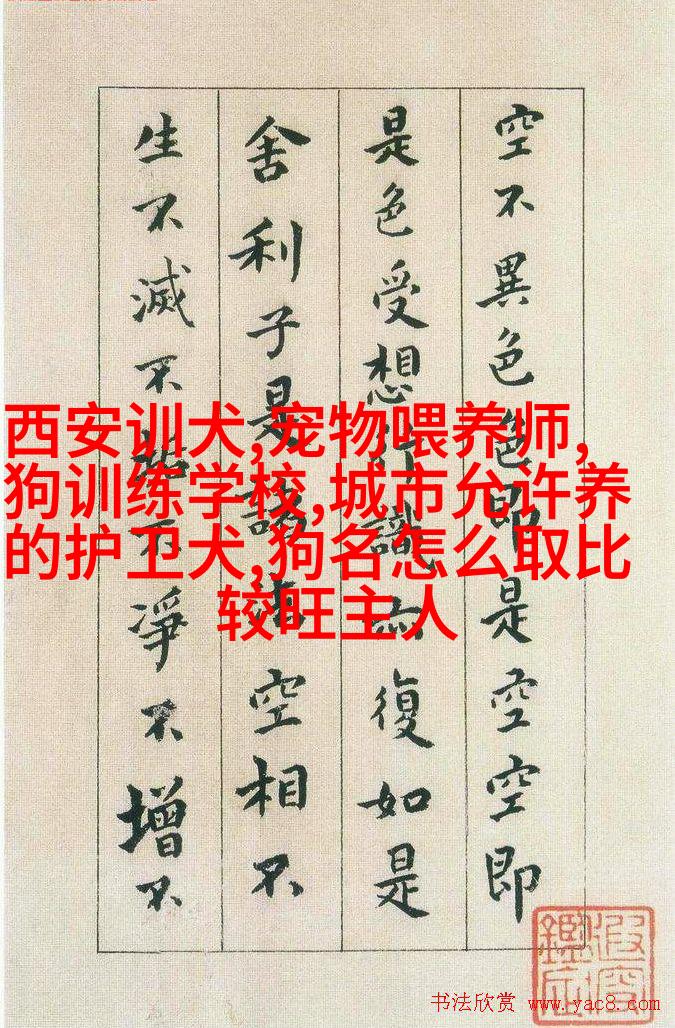 空不異色色即是空空即
是色受想行識亦復如是
舍利子是諸法空相不
生不滅不垢不淨不增不
西安训犬,宠物喂养师,
狗训练学校,城市允许养
的护卫犬,狗名怎么取比
较旺主人
书法欣赏 www.yac8.com